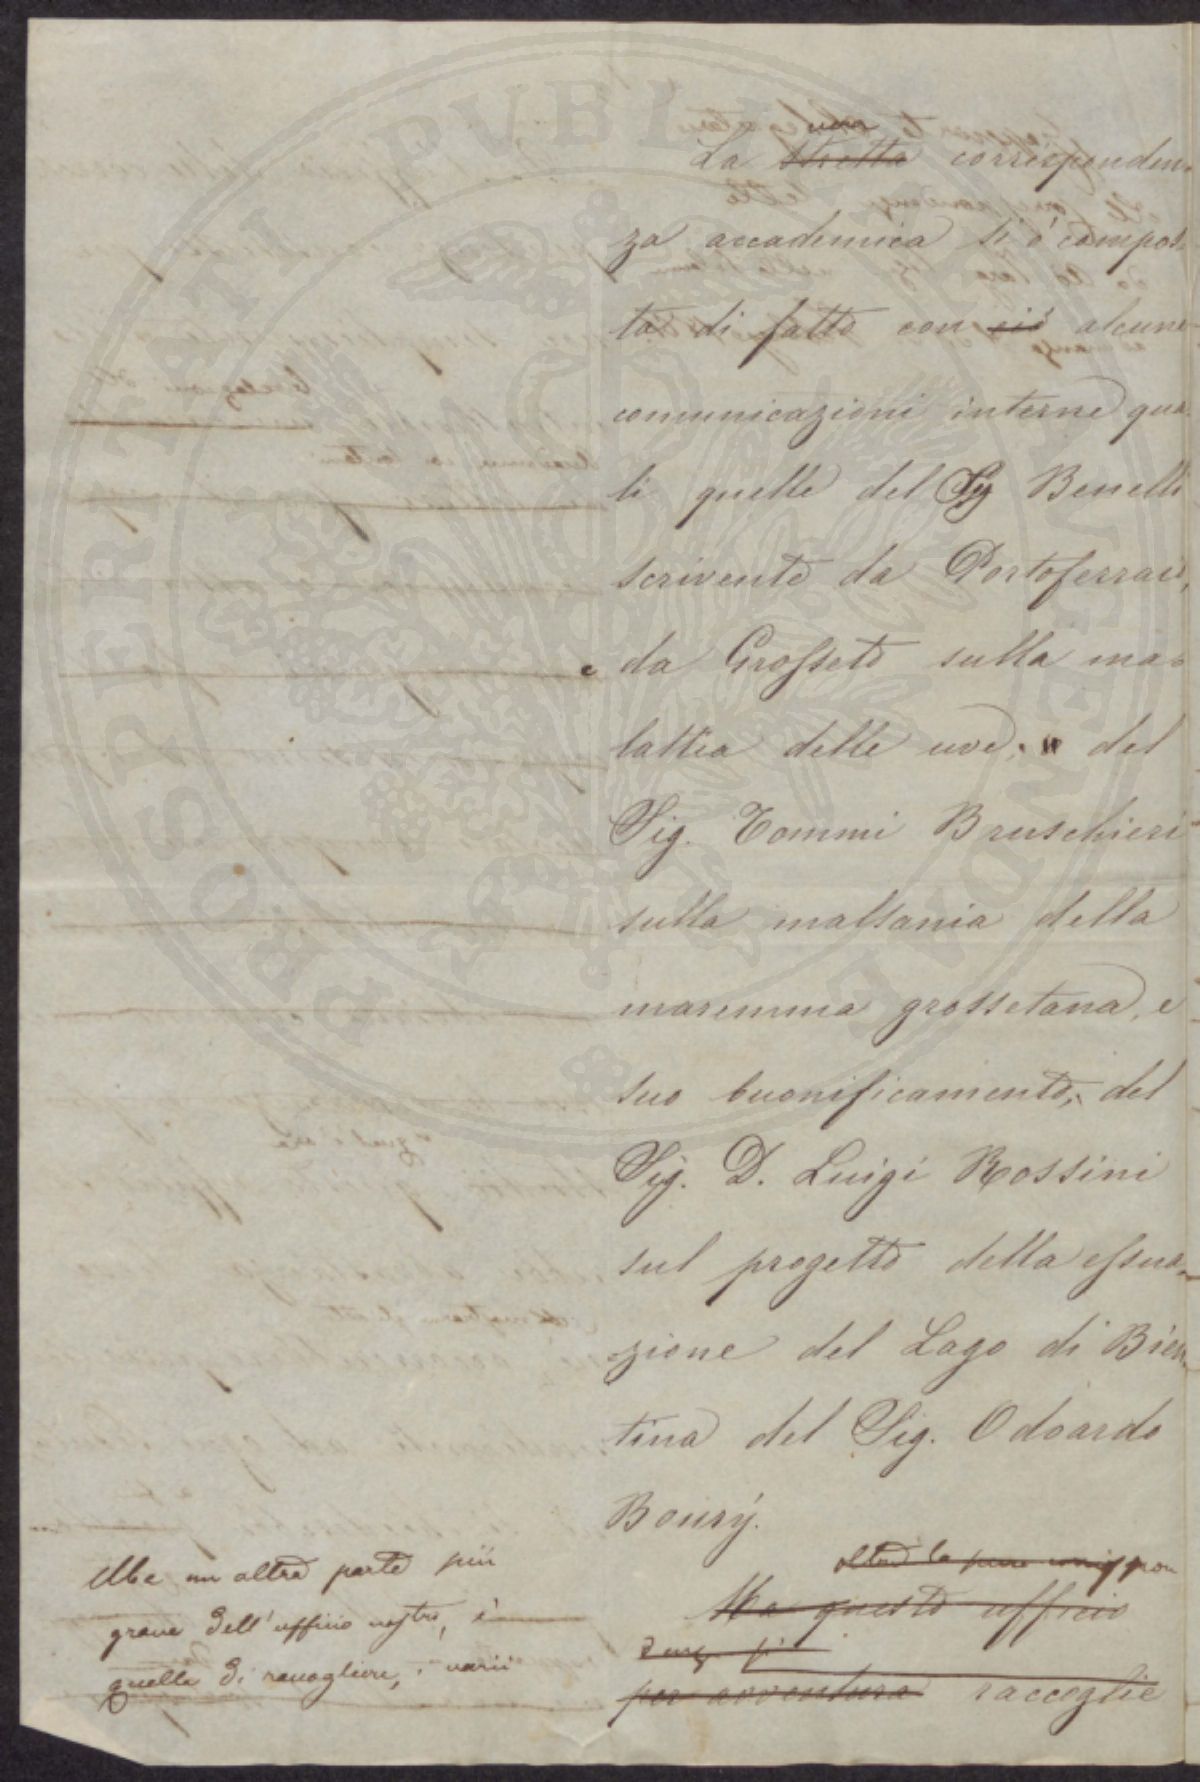 La ~~stretta~~ vera corresponden-
za accademica si è compos-
ta di fatto con ~~ciò~~ alcune
comunicazioni interne qua-
li quelle del Sig Benelli
scrivente da Portoferraio,
e da Grosseto sulla ma-
lattia delle uve; del
Sig. Tommi Bruschieri
sulla malsania della
maremma grossetana, e
suo buonificamento, del
Sig. D. Luigi Rossini
sul progetto della essica-
zione del Lago di Bien-
tina del Sig. Odoardo
Boury.
~~oltre la pura~~
~~Ma questo ufficio~~
~~per avventura~~ raccoglie
Ma un altra parte più
grave dell'ufficio nostro, è
quella di raccogliere, i varii
PROSPERITATI PVBLICAE AVGENDAE